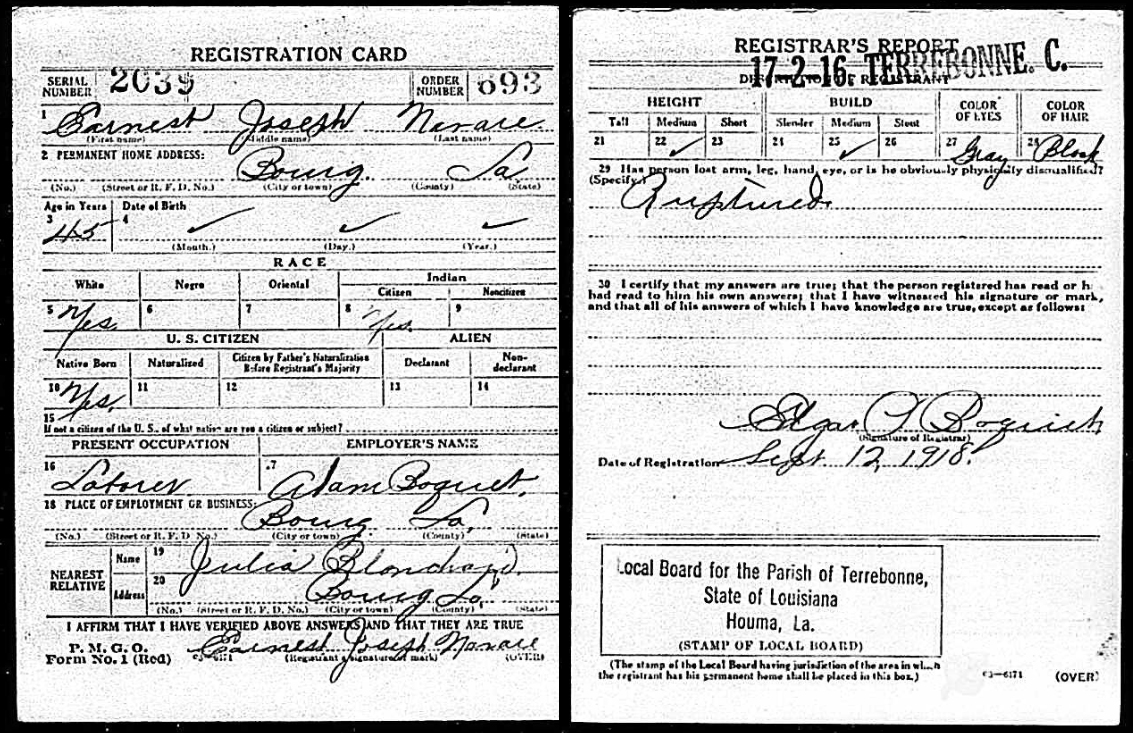 REGISTRATION CARD
SERIAL NUMBER 2039 ORDER NUMBER 693
1 Earnest Joseph Navare.
(First name) (Middle name) (Last name)
2 PERMANENT HOME ADDRESS:
Bourg. La
(No.) (Street or R. F. D. No.) (City or town) (County) (State)
Age in Years Date of Birth
3 45 4 ✓ ✓ ✓
(Month.) (Day.) (Year.)
RACE
White Negro Oriental Indian
Citizen Noncitizen
5 Yes. 6 7 8 Yes. 9
U. S. CITIZEN ALIEN
Native Born Naturalized Citizen by Father's Naturalization Before Registrant's Majority Declarant Non-declarant
10 Yes. 11 12 13 14
15
If not a citizen of the U. S., of what nation are you a citizen or subject?
PRESENT OCCUPATION EMPLOYER'S NAME
16 Laborer 17 Adam Boquet.
18 PLACE OF EMPLOYMENT OR BUSINESS:
Bourg La,
(No.) (Street or R. F. D. No.) (City or town) (County) (State)
NEAREST RELATIVE Name 19 Julia Blanchard.
Address 20 Bourg La,
(No.) (Street or R. F. D. No.) (City or town) (County) (State)
I AFFIRM THAT I HAVE VERIFIED ABOVE ANSWERS AND THAT THEY ARE TRUE
P. M. G. O.
Form No. 1 (Red) 03—6171 Earnest Joseph Navare
(Registrant's signature or mark) (OVER)
REGISTRAR'S REPORT
17-2-16 TERREBONNE. C.
DESCRIPTION OF REGISTRANT
HEIGHT BUILD COLOR OF EYES COLOR OF HAIR
Tall Medium Short Slender Medium Stout
21 22 ✓ 23 24 25 ✓ 26 27 Gray 28 Black
29 Has person lost arm, leg, hand, eye, or is he obviously physically disqualified?
(Specify.) Ruptured.
30 I certify that my answers are true; that the person registered has read or h
had read to him his own answers; that I have witnessed his signature or mark,
and that all of his answers of which I have knowledge are true, except as follows:
(Signature of Registrar)
Date of Registration Sept 12, 1918.
Local Board for the Parish of Terrebonne,
State of Louisiana
Houma, La.
(STAMP OF LOCAL BOARD)
(The stamp of the Local Board having jurisdiction of the area in which
the registrant has his permanent home shall be placed in this box.)
03—6171 (OVER)